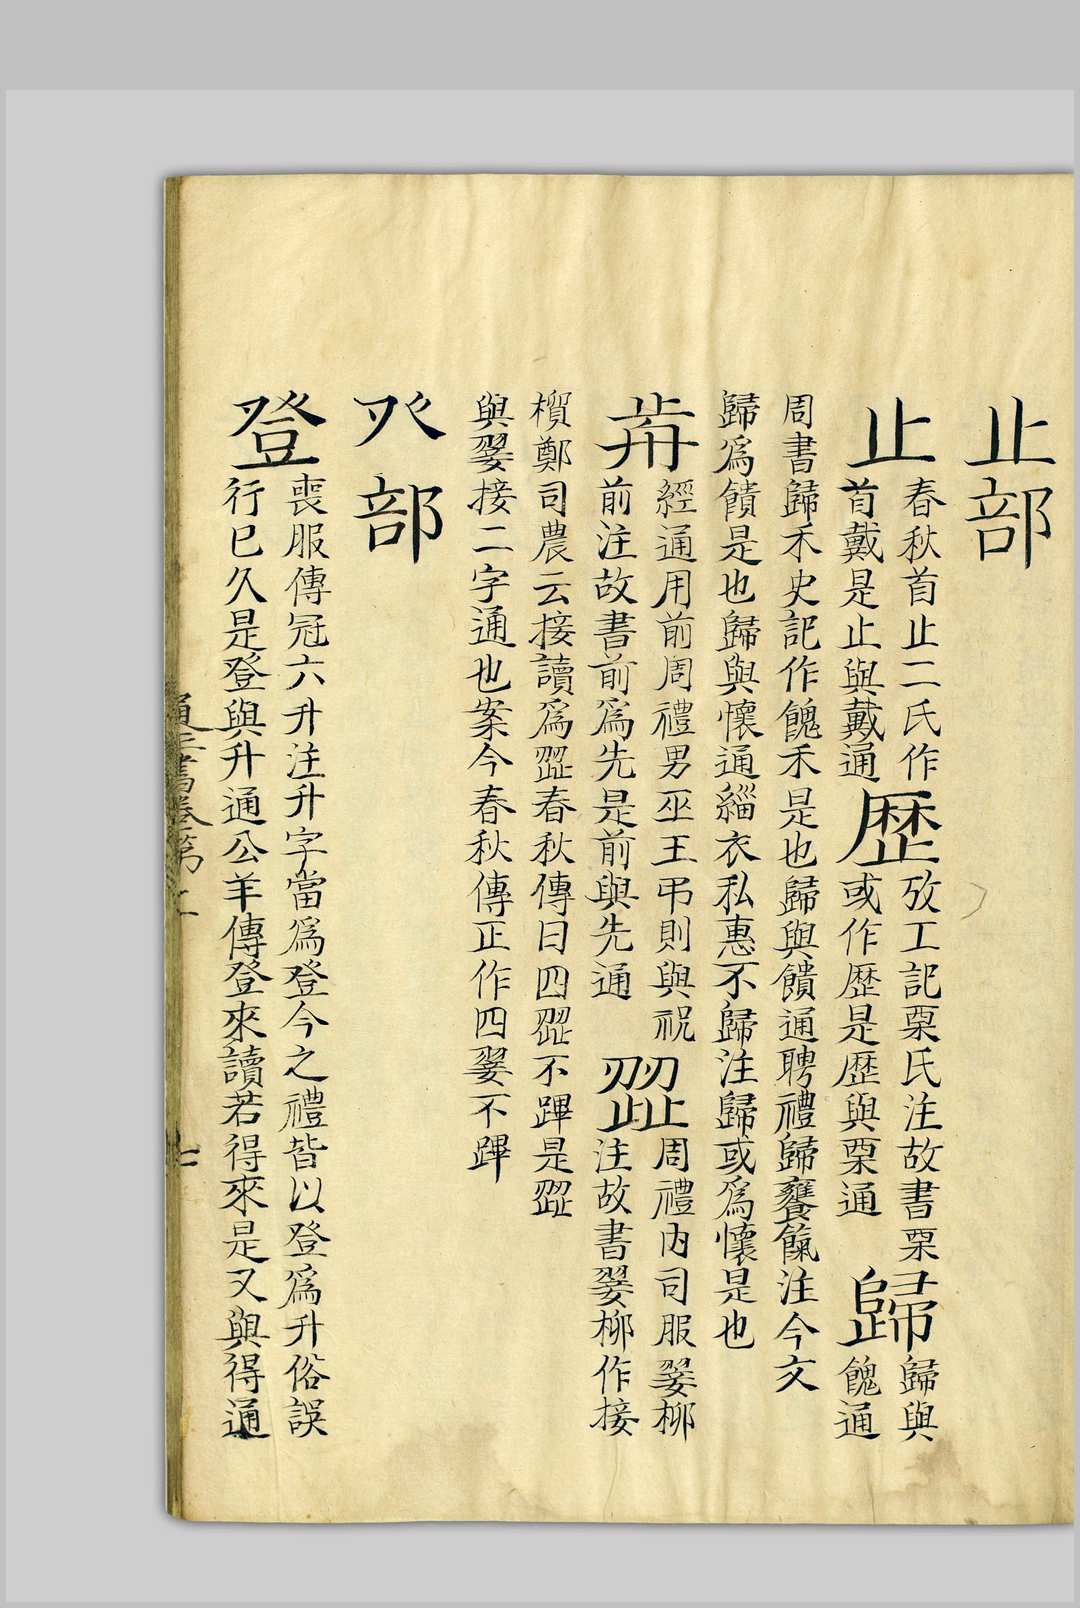 止部
止春秋首止二氏作
首戴是止與戴通
歷攷工記㮚氏注故書㮚
或作歷是歷與㮚通
歸歸與
餽通
周書歸禾史記作餽禾是也歸與饋通聘禮歸饔餼注今文
歸爲饋是也歸與懷通緇衣私惠不歸注歸或爲懷是也
歬經通用前周禮男巫王弔則與祝
前注故書前爲先是前與先通
歰周禮內司服翣柳
注故書翣柳作接
檟鄭司農云接讀爲歰春秋傳曰四歰不蹕是歰
與翣接二字通也案今春秋傳正作四翣不蹕
癶部
登喪服傳冠六升注升字當爲登今之禮皆以登爲升俗誤
行已久是登與升通公羊傳登來讀若得來是又與得通